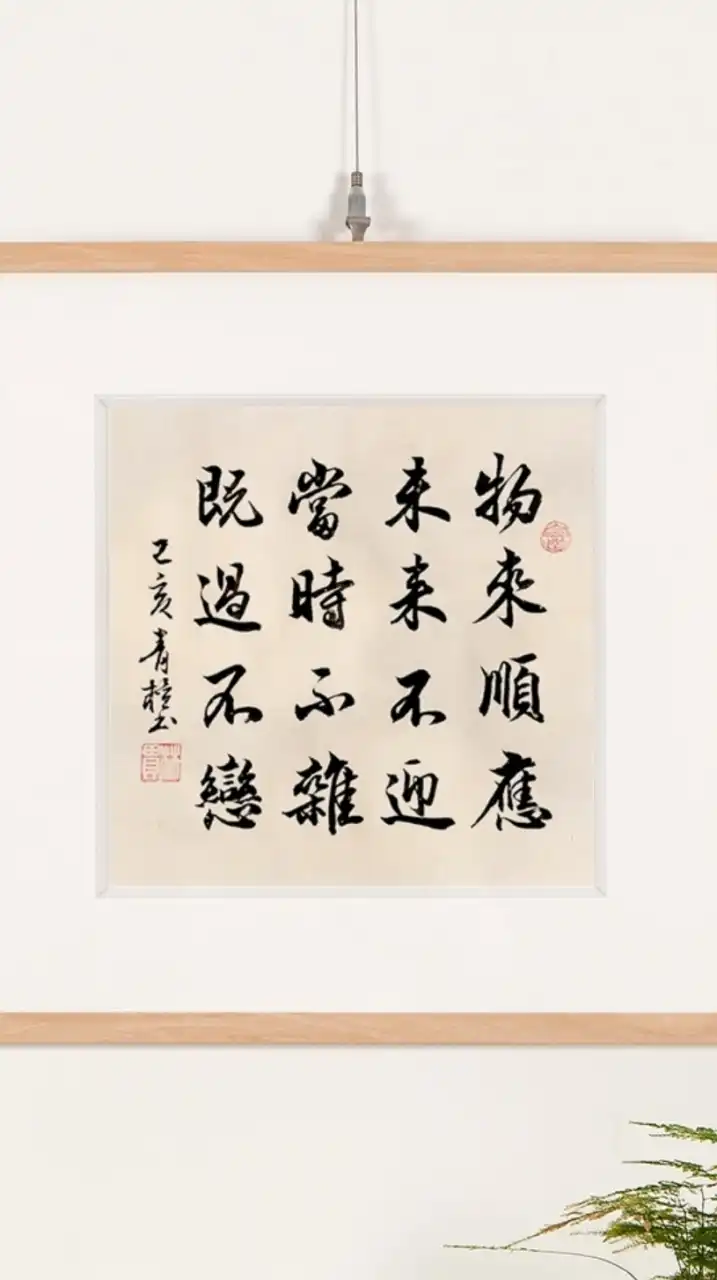 物來順應
未来不迎
當時不雜
既過不戀
己亥青